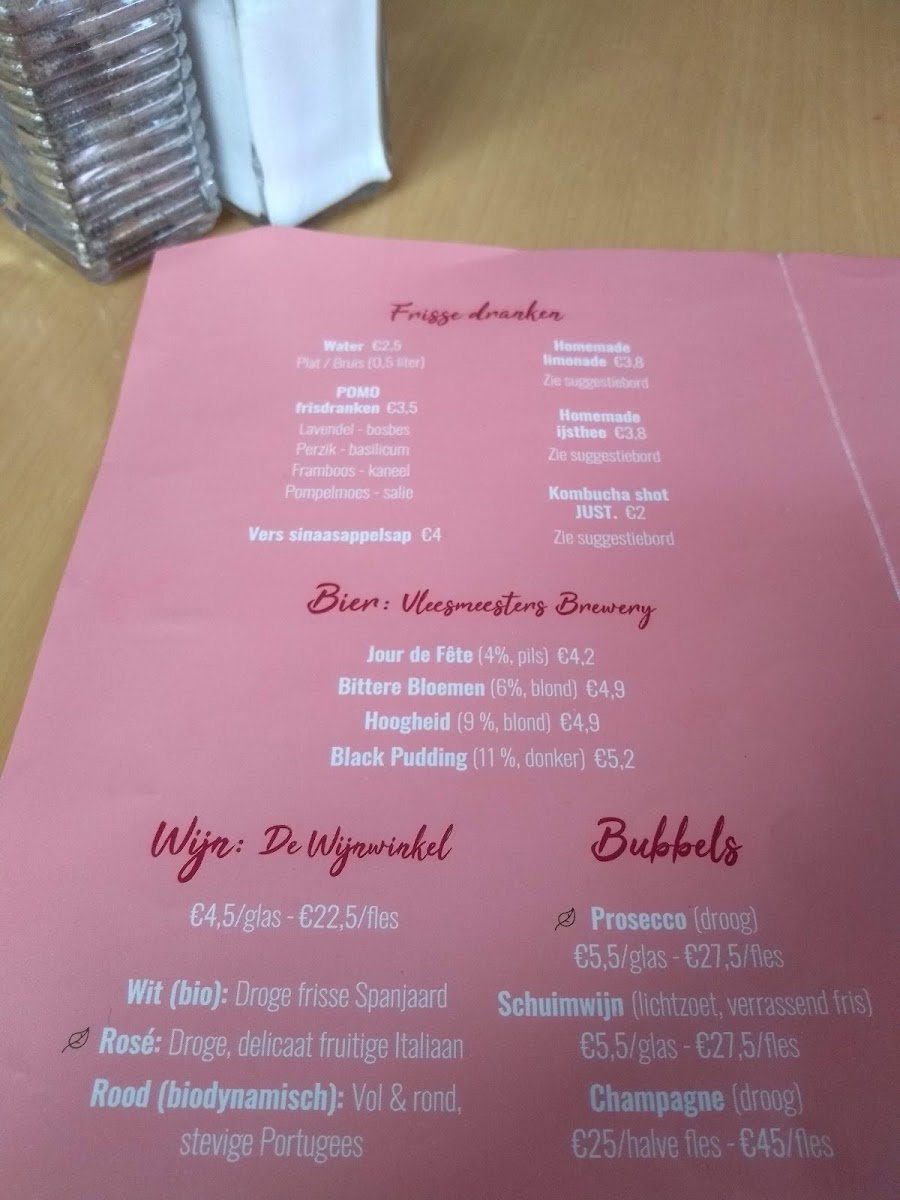 Frisse dranken
Water €2.5
Plat / Bruis (0,5 liter)
POMO
frisdranken €3,5
Lavendel - bosbes
Perzik - basilicum
Framboos - kaneel
Pompelmoes - salie
Vers sinaasappelsap €4
Homemade
limonade €3,8
Zie suggestiebord
Homemade
ijsthee €3,8
Zie suggestiebord
Kombucha shot
JUST. €2
Zie suggestiebord
Bier: Vleesmeesters Brewery
Jour de Fête (4%, pils) €4,2
Bittere Bloemen (6%, blond) €4,9
Hoogheid (9 %, blond) €4,9
Black Pudding (11 %, donker) €5,2
Wijn: De Wijnwinkel
€4,5/glas - €22,5/fles
Wit (bio): Droge frisse Spanjaard
Rosé: Droge, delicaat fruitige Italiaan
Rood (biodynamisch): Vol & rond,
stevige Portugees
Bubbels
Prosecco (droog)
€5,5/glas - €27,5/fles
Schuimwijn (lichtzoet, verrassend fris)
€5,5/glas - €27,5/fles
Champagne (droog)
€25/halve fles - €45/fles